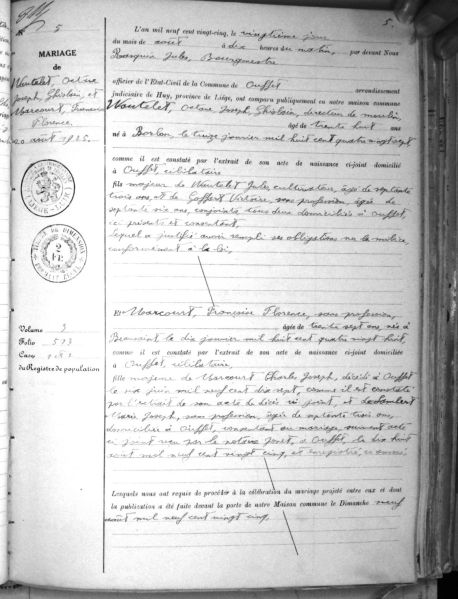 5.
N° 5
MARIAGE
de
Wautelet, Octave
Joseph, Ghislain, et
Harcourt, Françoise
Florence.
20 août 1925.
Volume 3
Folio 513
Case
du Registre de population
L'an mil neuf cent vingt-cinq, le vingtième jour
du mois de août à dix heures du matin, par devant Nous
Jules, Bourgmestre
officier de l'Etat-Civil de la Commune de Ouffet arrondissement
judiciaire de Huy, province de Liège, ont comparu publiquement en notre maison commune
Wautelet, Octave Joseph, Ghislain, directeur de moulin,
âgé de trente huit ans
né à Borlon, le treize janvier mil huit cent quatre vingt sept
comme il est constaté par l'extrait de son acte de naissance ci-joint domicilié
à Ouffet, célibataire
fils majeur de Wautelet Jules, cultivateur, âgé de septante
trois ans, et de Goffart Victoire, sans profession, âgée de
septante six ans, conjoints tous deux domiciliés à Ouffet,
ci présents et consentant,
lequel a justifié avoir rempli ses obligations de la milice,
conformément à la loi,
Et Harcourt, Françoise Florence, sans profession,
âgée de trente sept ans, née à
le dix janvier mil huit cent quatre vingt huit,
comme il est constaté par l'extrait de son acte de naissance ci-joint domiciliée
à Ouffet, célibataire,
fille majeure de Harcourt Charles Joseph, décédé à Ouffet
le six juin mil neuf cent dix sept comme il est constaté
par l'extrait de son acte de décès ci joint, et de Lambert
Marie Joseph, sans profession, âgée de septante trois ans,
domiciliée à Ouffet, consentant au mariage suivant acte
ci joint reçu par le notaire à Ouffet, le dix huit
août mil neuf cent vingt cinq, et enregistré,
Lesquels nous ont requis de procéder à la célébration du mariage projeté entre eux et dont
la publication a été faite devant la porte de notre Maison commune le Dimanche neuf
août mil neuf cent vingt cinq,